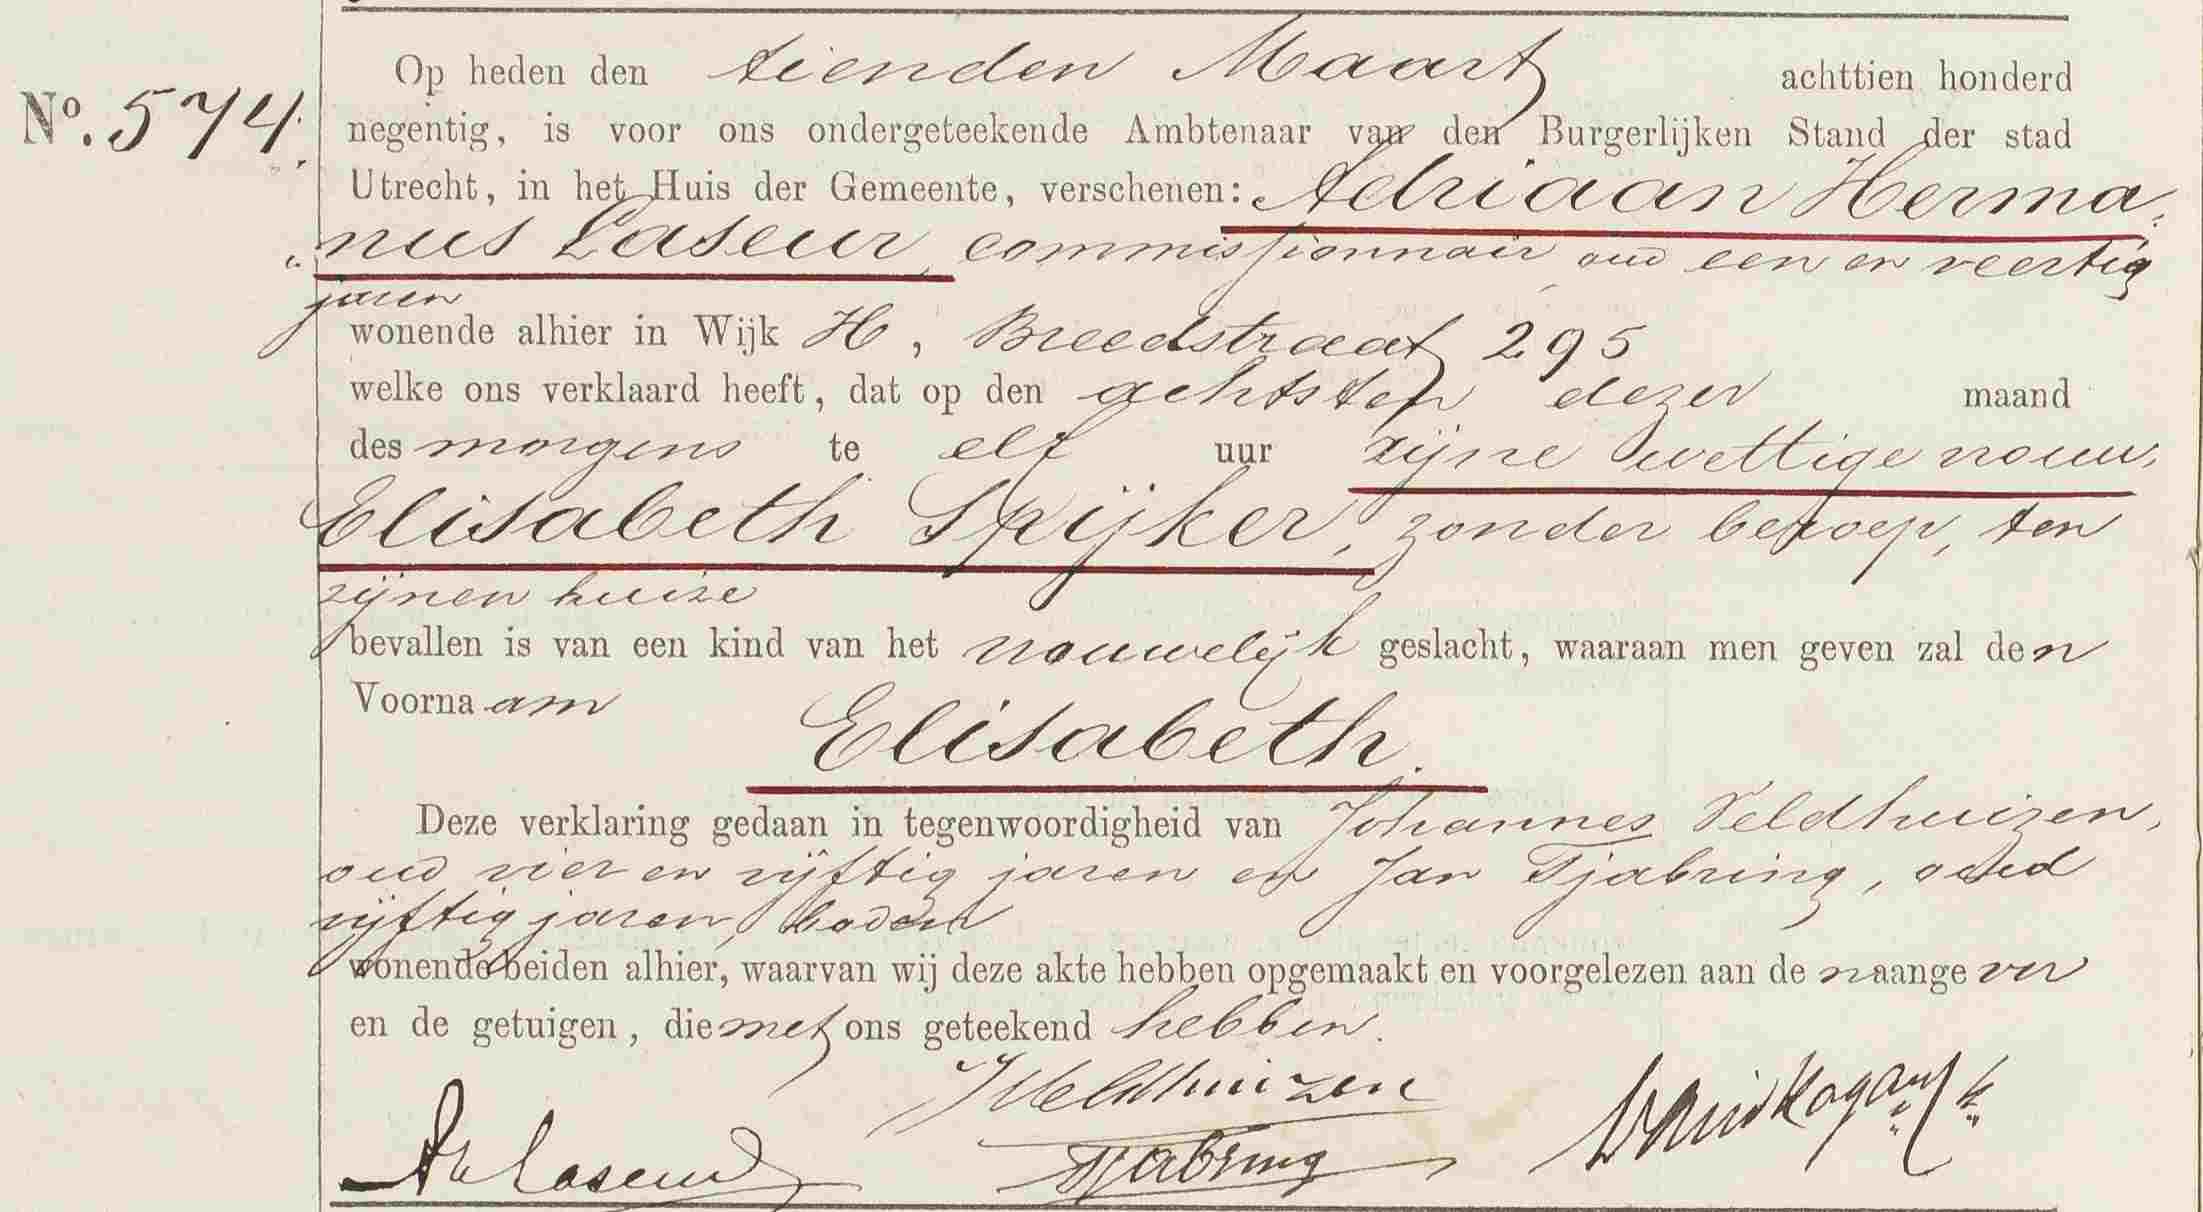 No. 574.
Op heden den tienden Maart achttien honderd
negentig, is voor ons ondergeteekende Ambtenaar van den Burgerlijken Stand der stad
Utrecht, in het Huis der Gemeente, verschenen: Adriaan Herma„
„nus Laseur, commissionnair oud een en veertig
jaren
wonende alhier in Wijk H, Breedstraat 295
welke ons verklaard heeft, dat op den achtsten dezer maand
des morgens te elf uur zijne wettige vrouw,
Elisabeth Spijker, zonder beroep, ten
zijnen huize
bevallen is van een kind van het vrouwelijk geslacht, waaraan men geven zal den
Voornaam
Elisabeth.
Deze verklaring gedaan in tegenwoordigheid van Johannes Veldhuizen,
oud vier en vijftig jaren en Jan Tjabring, oud
vijftig jaren, boden
wonende beiden alhier, waarvan wij deze akte hebben opgemaakt en voorgelezen aan de naangever
en de getuigen, die met ons geteekend hebben.
JVeldhuizen
AH Laseur
Tjabring